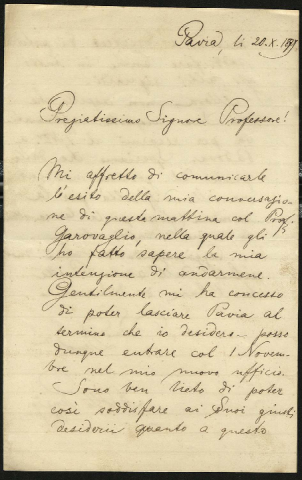 Pavia, li 20.X.
Pregiatissimo Signore Professore!
Mi affretto di comunicarle
l'esito della mia conversazio-
ne di questa mattina col Prof.
Garovaglio, nella quale gli
ho fatto sapere la mia
intenzione di andarmene.
Gentilmente mi ha concesso
di poter lasciare Pavia al
termine che io desidero - posso
dunque entrare col 1 Novem-
bre nel mio nuovo ufficio.
Sono ben lieto di poter
così soddisfare ai Suoi giusti
desiderii quanto a questo